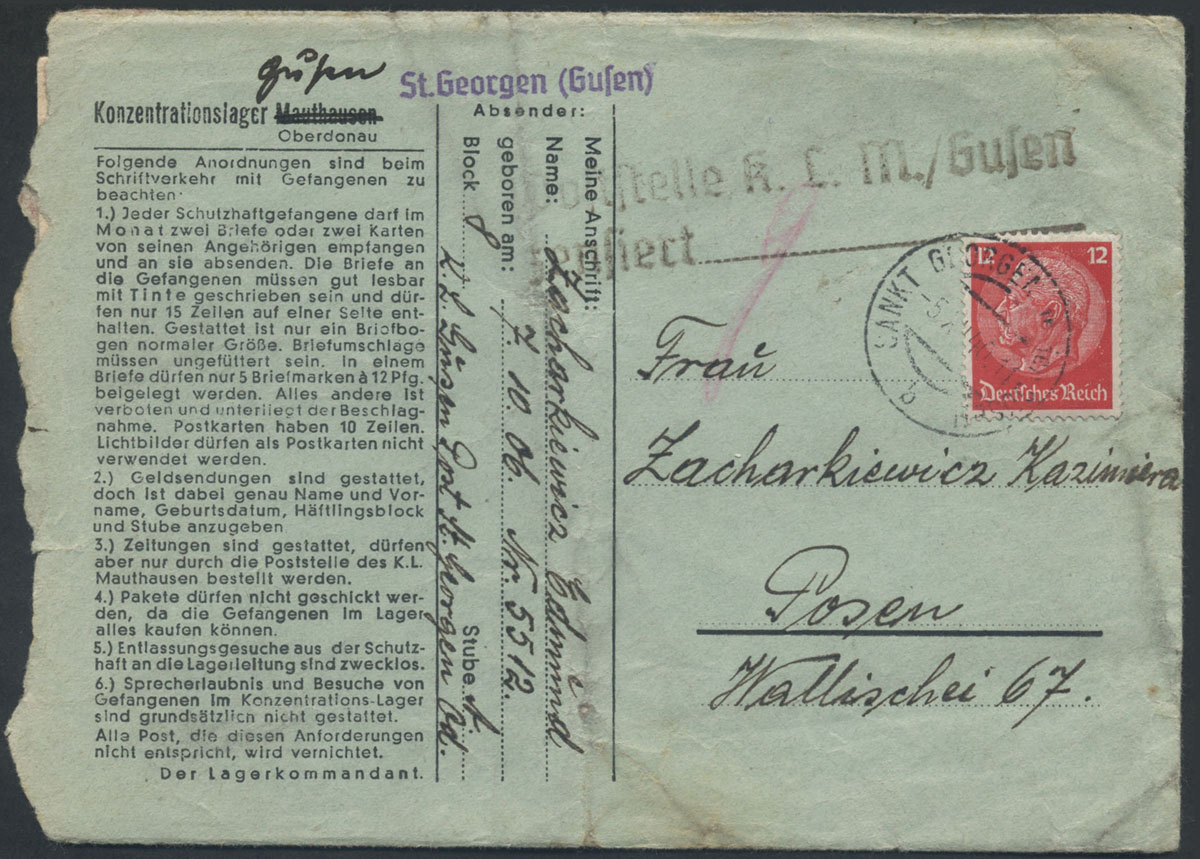 Gusen
St. Georgen (Gusen)
Konzentrationslager Mauthausen
Oberdonau
Folgende Anordnungen sind beim
Schriftverkehr mit Gefangenen zu
beachten:
1.) Jeder Schutzhaftgefangene darf im
Monat zwei Briefe oder zwei Karten
von seinen Angehörigen empfangen
und an sie absenden. Die Briefe an
die Gefangenen müssen gut lesbar
mit Tinte geschrieben sein und dür-
fen nur 15 Zeilen auf einer Seite ent-
halten. Gestattet ist nur ein Briefbo-
gen normaler Größe. Briefumschläge
müssen ungefüttert sein. In einem
Briefe dürfen nur 5 Briefmarken à 12 Pfg.
beigelegt werden. Alles andere ist
verboten und unterliegt der Beschlag-
nahme. Postkarten haben 10 Zeilen.
Lichtbilder dürfen als Postkarten nicht
verwendet werden.
2.) Geldsendungen sind gestattet,
doch ist dabei genau Name und Vor-
name, Geburtsdatum, Häftlingsblock
und Stube anzugeben
3.) Zeitungen sind gestattet, dürfen
aber nur durch die Poststelle des K.L.
Mauthausen bestellt werden.
4.) Pakete dürfen nicht geschickt wer-
den, da die Gefangenen im Lager
alles kaufen können.
5.) Entlassungsgesuche aus der Schutz-
haft an die Lagerleitung sind zwecklos.
6.) Sprecherlaubnis und Besuche von
Gefangenen im Konzentrations-Lager
sind grundsätzlich nicht gestattet.
Alle Post, die diesen Anforderungen
nicht entspricht, wird vernichtet.
Der Lagerkommandant.
Absender:
Meine Anschrift:
Name: Zacharkiewicz Edmund
geboren am: 7. 10. 06. Nr. 5512
Block 8 Stube A.
K L Gusen Post St. Georgen Od.
Poststelle K. L. M./Gusen
zensiert
SANKT GEORGEN
b
12 12
Deutsches Reich
Frau
Zacharkiewicz Kazimiera
Posen
Wallischei 67.